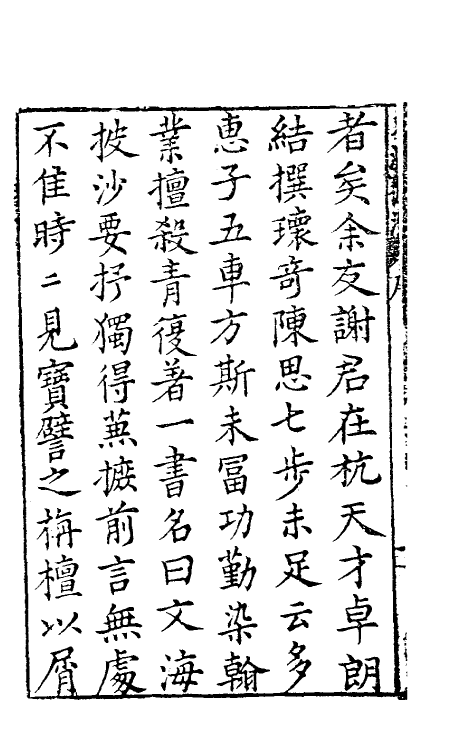 者矣余友謝君在杭天才卓朗
結撰瓌奇陳思七歩未足云多
惠子五車方斯未冨功勤染翰
業擅殺青復著一書名曰文海
披沙要抒獨得蕪摭前言無處
不隹時二見寳譬之栴檀以屑